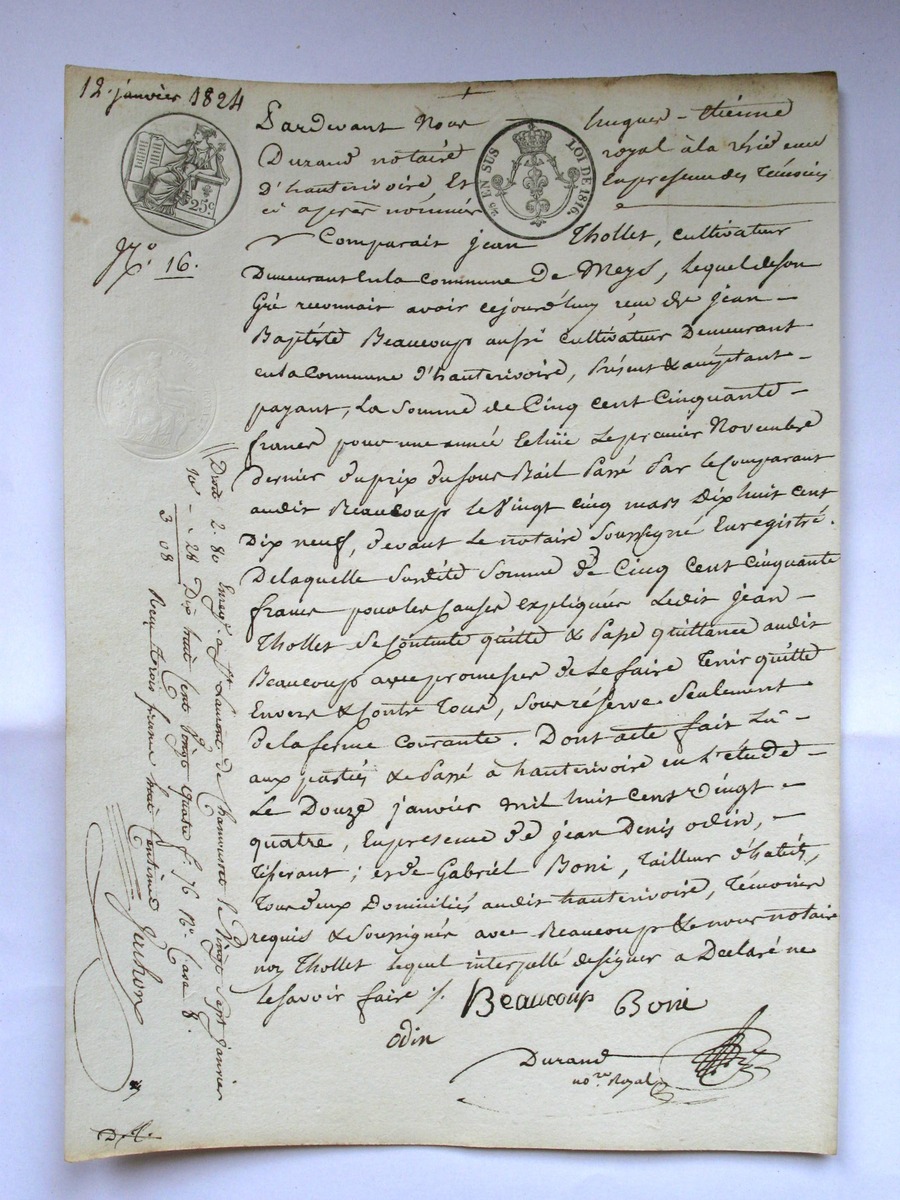 12. janvier 1824
Pardevant Nous hugues - étienne
Durand notaire royal à la résidence
D'hauterivoire Et En presence des Témoins
ci après nommés
25c.
EN SUS LOI DE 1816.
N.o 16.
Comparait jean Thollet, cultivateur
Demeurant En la Commune De Meys, Lequel de son
Gré reconnait avoir cejourd'huy reçu de jean -
Baptiste Beaucoup aussi cultivateur Demeurant
en la Commune d'hauterivoire, Présent & acceptant -
payant, La Somme de Cinq cent Cinquante -
francs pour une année Echüe Le premier Novembre
dernier du prix du sous Bail Passé Par le Comparant
audit Beaucoup le Vingt cinq mars Dix huit cent
Dix neuf, devant Le notaire Soussigné Enregistré.
De laquelle Susdite Somme de Cinq cent cinquante
francs pour les Causes Expliquées Ledit jean -
Thollet Se Contente quitte & Passe quittance audit
Beaucoup avec promesses de Le faire Tenir quitte
Envers & Contre Tous, Sous réserve Seulement
de la ferme Courante. Dont acte fait Lu -
aux parties & Passé à hauterivoire en L'étude -
Le Douze janvier mil huit cent vingt -
quatre, En presence de jean Denis odin, -
Tisserant; et de Gabriël Boni, Tailleur d'habits,
Tous deux Domiciliés audit hauterivoire, Témoins
requis & Soussignés avec Beaucoup & nous notaire
non Thollet Lequel interpellé de signer a Déclaré ne
le savoir faire ./.
Beaucoup Boni
odin
Durand
no.re Royal
Droit 2. 80 Enreg.é a St. Laurent de Chamousset le Vingt Sept janvier
10.e - 28 Dix huit Cent Vingt quatre f.o 76 R.o Case 8.
3 08 Reçu trois francs huit Centimes